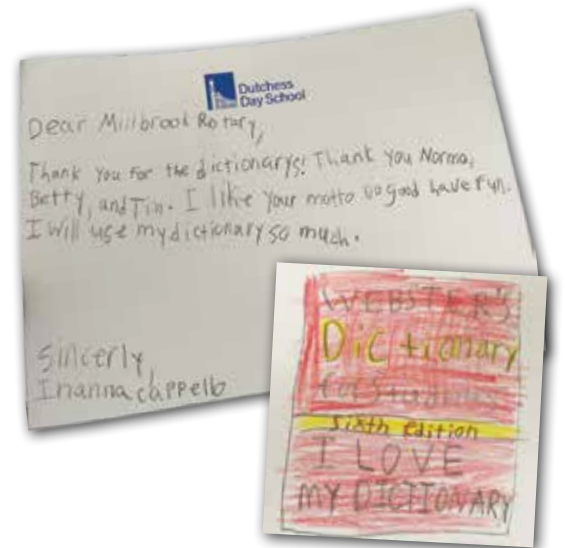 Dutchess
Day School
Dear Millbrook Rotary,
Thank you for the dictionarys! Thank you Norma,
Betty, and Tin. I like your motto Do good have fun.
I will use my dictionary so much.
Sincerly,
Inanna Cappello
WEBSTER'S
Dictionary
for Students
Sixth Edition
I LOVE
MY DICTIONARY